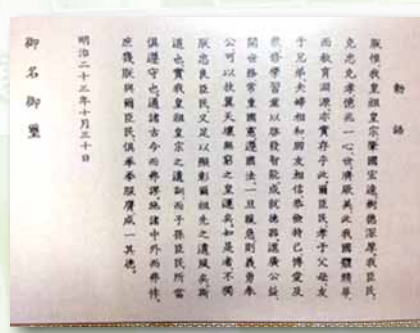 勅語
朕惟我皇祖皇宗肇國宏遠樹德深厚我臣民
克忠克孝億兆一心世濟厥美此我國體精華
而教育淵源亦實存乎此爾臣民孝于父母友
于兄弟夫婦相和朋友相信恭儉持己博愛及
衆修學習業以啓發智能成就德器進廣公益
開世務常重國憲遵國法一旦緩急則義勇奉
公可以扶翼天壤無窮之皇運矣如是者不獨
朕忠良臣民又足以顯彰爾祖先之遺風矣斯
道也實我皇祖皇宗之遺訓而子孫臣民所當
俱遵守也通諸古今而弗謬施諸中外而弗悖
庶幾朕與爾臣民俱拳拳服膺咸一其德
明治二十三年十月三十日
御名御璽